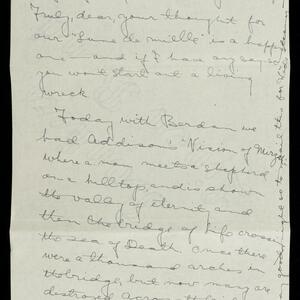 Truly, dear, your thought for
our "lune de mielle" is a happy
one — and if I have any say so
you won't start out a living
wreck
Today with Berdan we
had Addison's "Vision of Mirza"
where a man meets a shepherd
on a hilltop, and is shown
the valley of eternity and
then the bridge of Life crossing
the sea of Death. Once there
were a thousand arches in
the bridge, but now many are
destroyed across